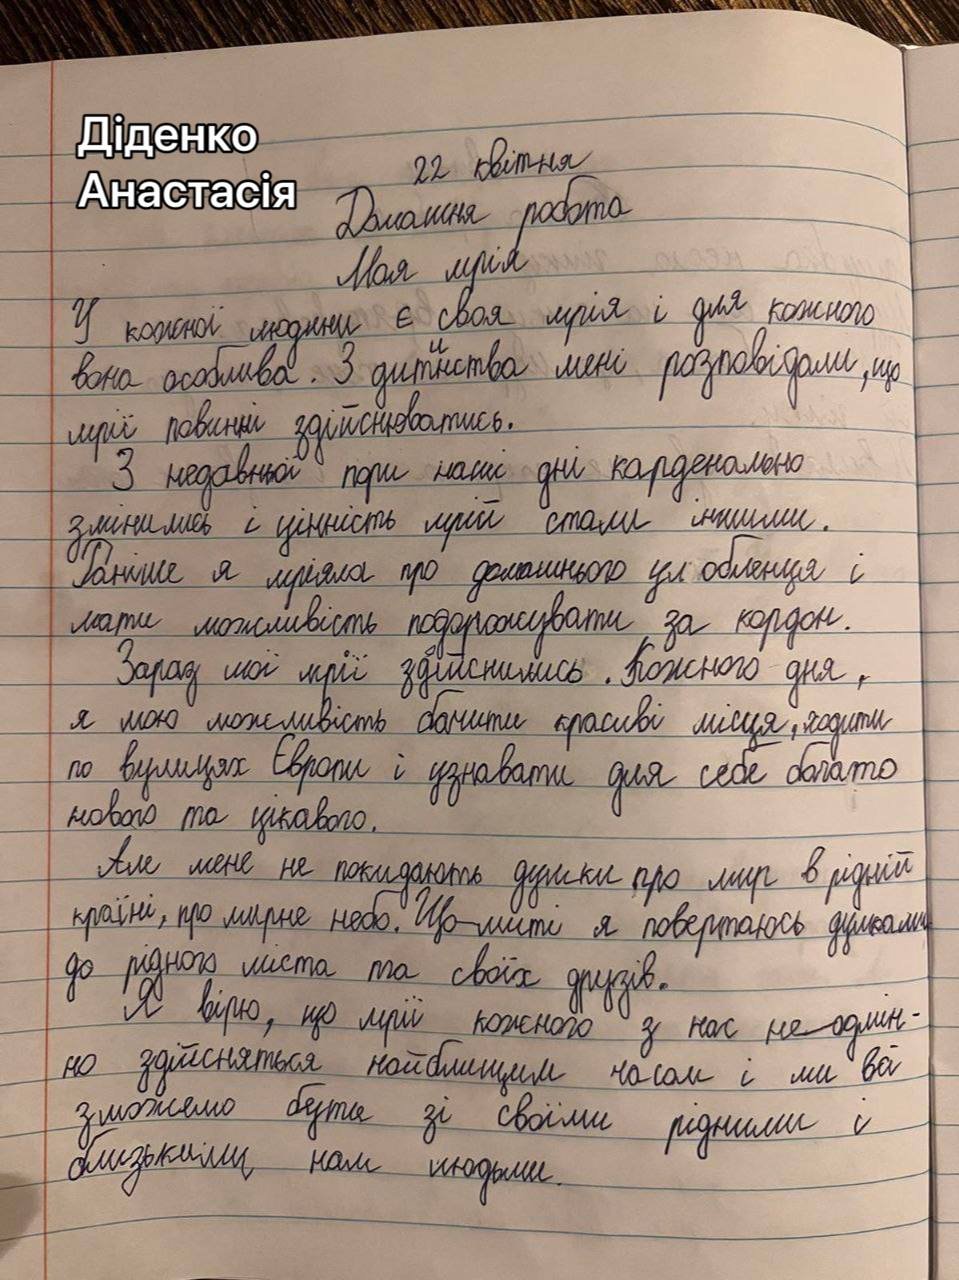 Діденко
Анастасія
22 квітня
Домашня робота
Моя мрія
У кожної людини є своя мрія і для кожного
вона особлива. З дитинства мені розповідали, що
мрії повинні здійснюватись.
З недавньої пори наші дні карденально
змінились і цінність мрій стали іншими.
Раніше я мріяла про домашнього улюбленця і
мати можливість подорожувати за кордон.
Зараз мої мрії здійснились. Кожного дня,
я маю можливість бачити красиві місця, ходити
по вулицях Європи і узнавати для себе багато
нового та цікавого.
Але мене не покидають думки про мир в рідній
країні, про мирне небо. Що-миті я повертаюсь думками
до рідного міста та своїх друзів.
Я вірю, що мрії кожного з нас не одмін-
но здійсняться найблищим часом і ми всі
зможемо бути зі своїми рідними і
близькими нам людьми.